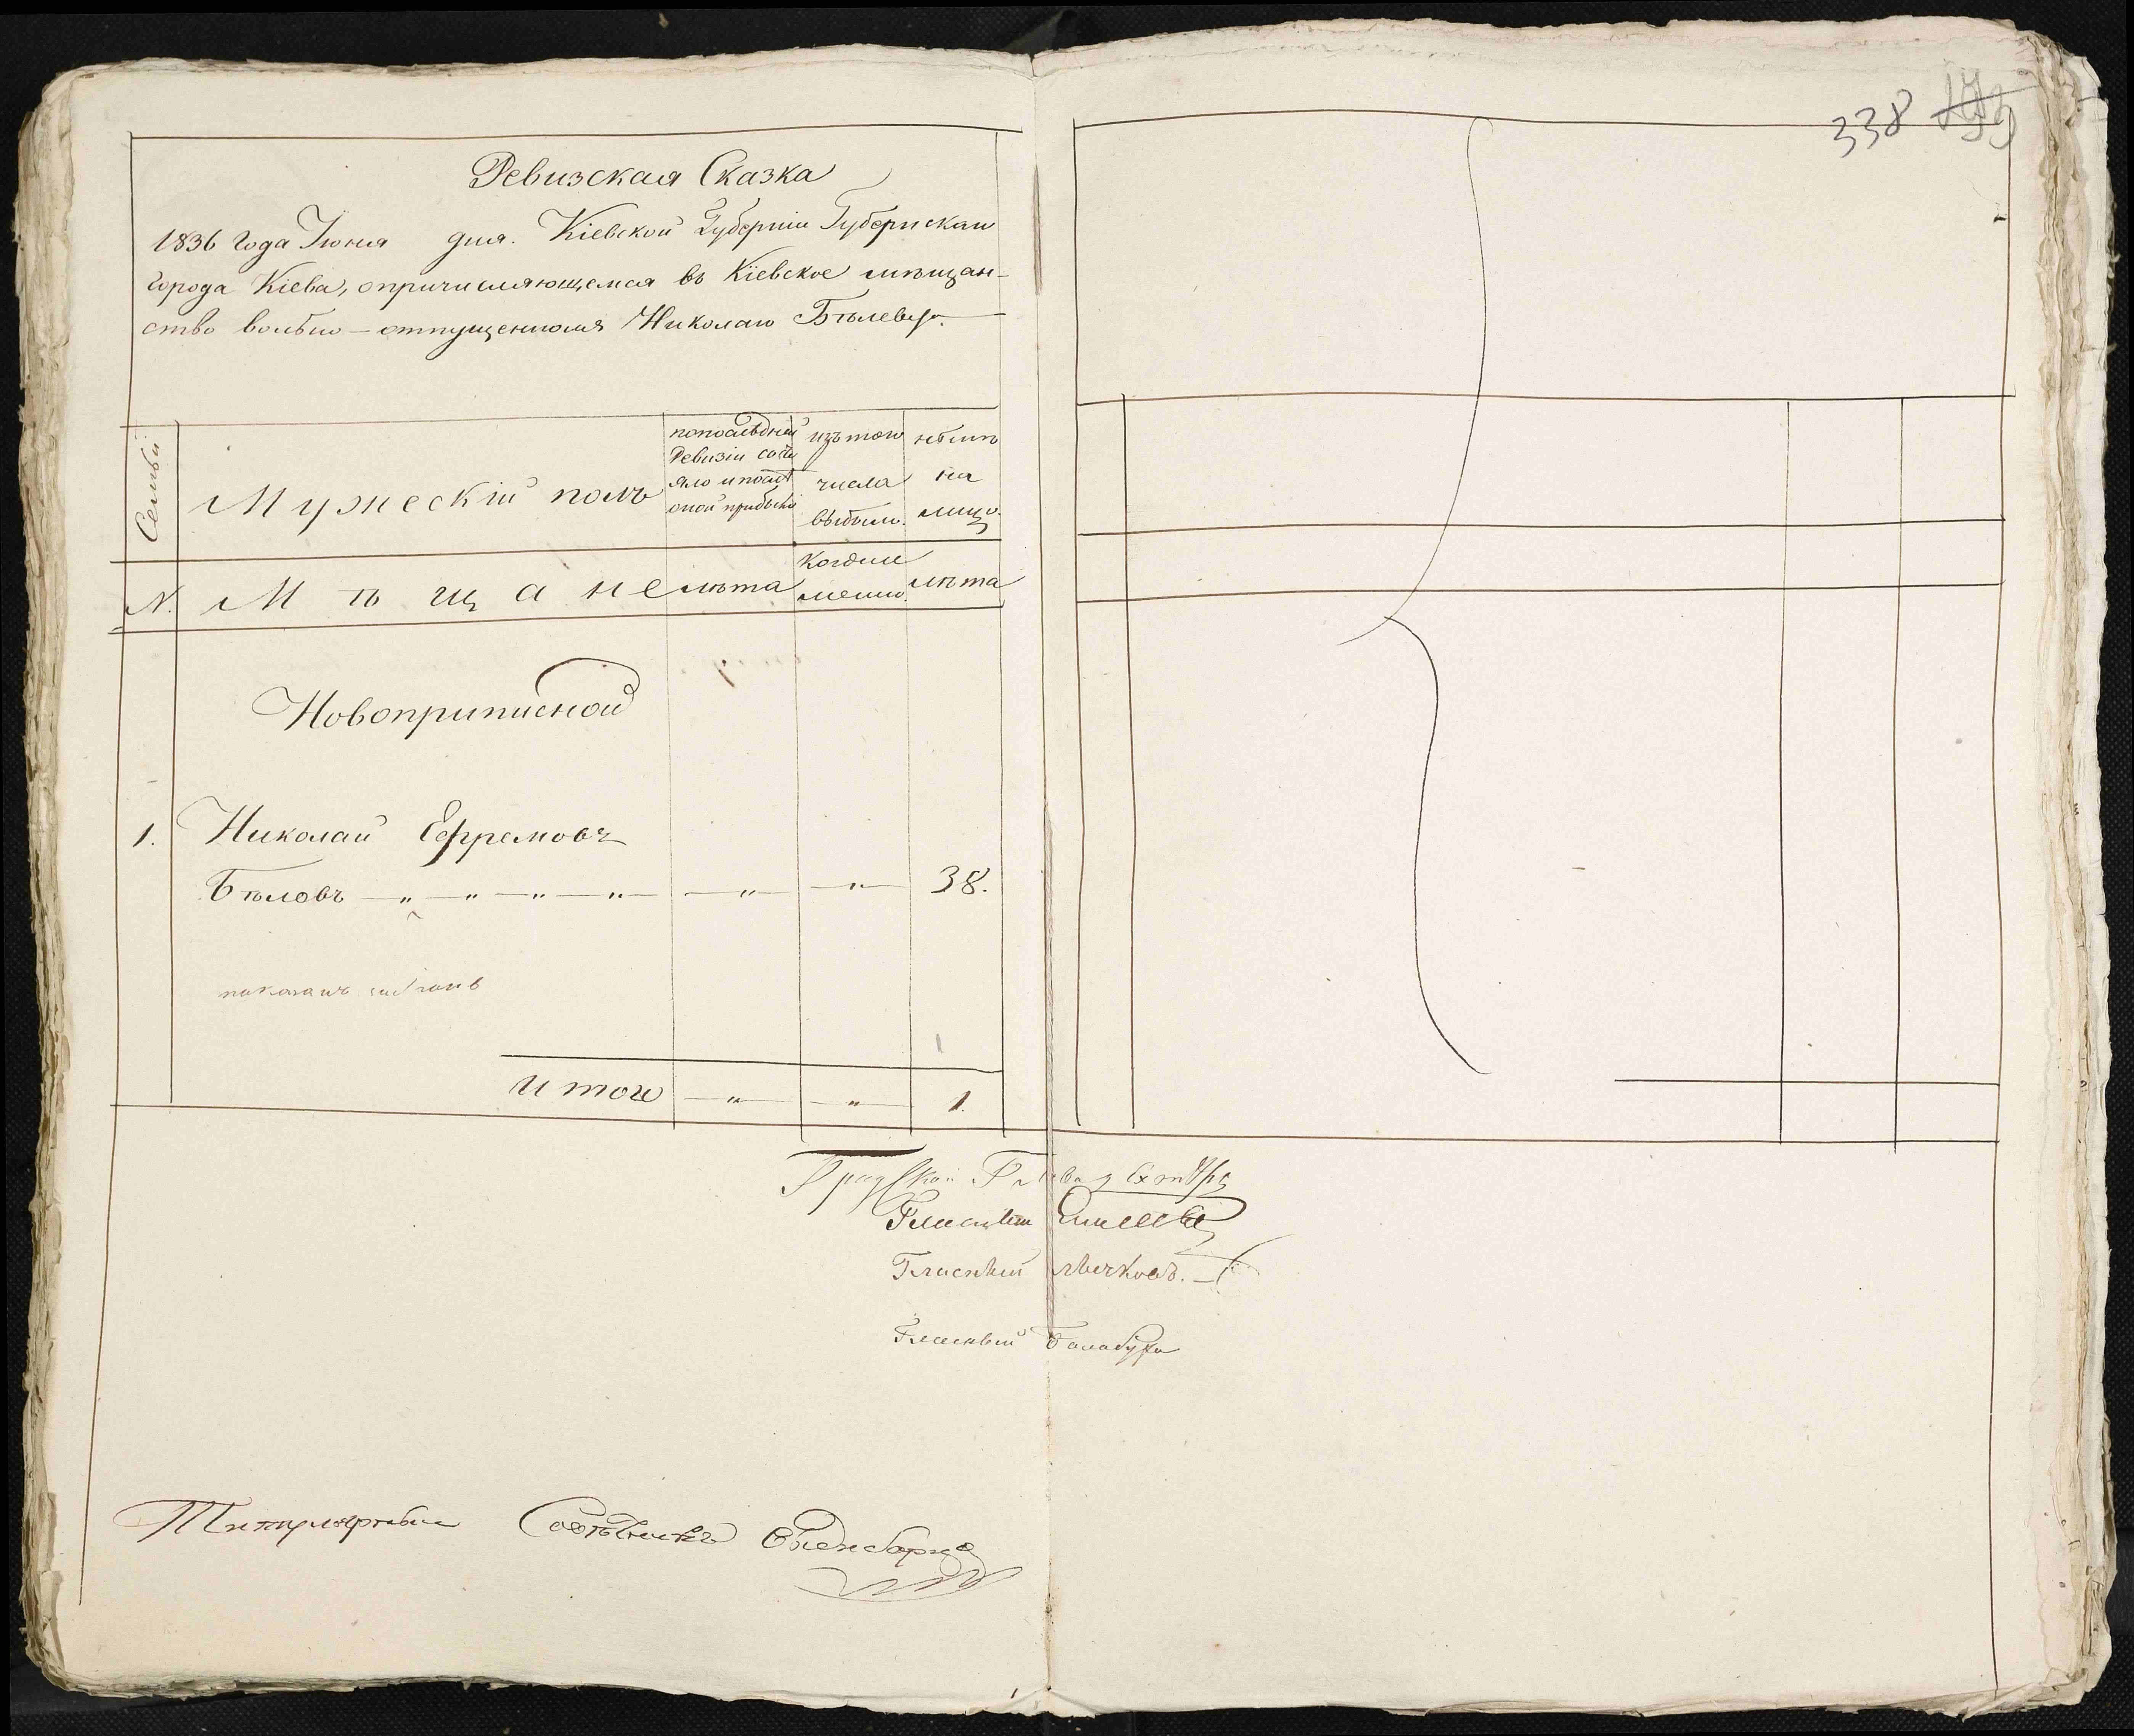 338
Ревизская Сказка
1836 года Іюня дня. Кіевской Губерніи Губернскаго
города Кіева, опричисляющемся въ Кіевское мѣщан-
ство вольно-отпущенномъ Николаю Бѣлеву.
Семьи
Мужескій полъ
попослѣдней
Ревизіи состо
яло и послѣ
оной прибыло
изъ того
числа
выбыло.
нынѣ
на
лицо.
N.
Мѣщане
лѣта
когда и
менно.
лѣта
Новоприписной
1. Николай Ефремовъ
Бѣловъ — „ — „ — „ — „ — — „ — — „ — 38.
показанъ
1
Итого — „ — — „ — 1.
Градской Глава
Гласный
Гласный
Гласный Балабуха
Титулярный Совѣтникъ